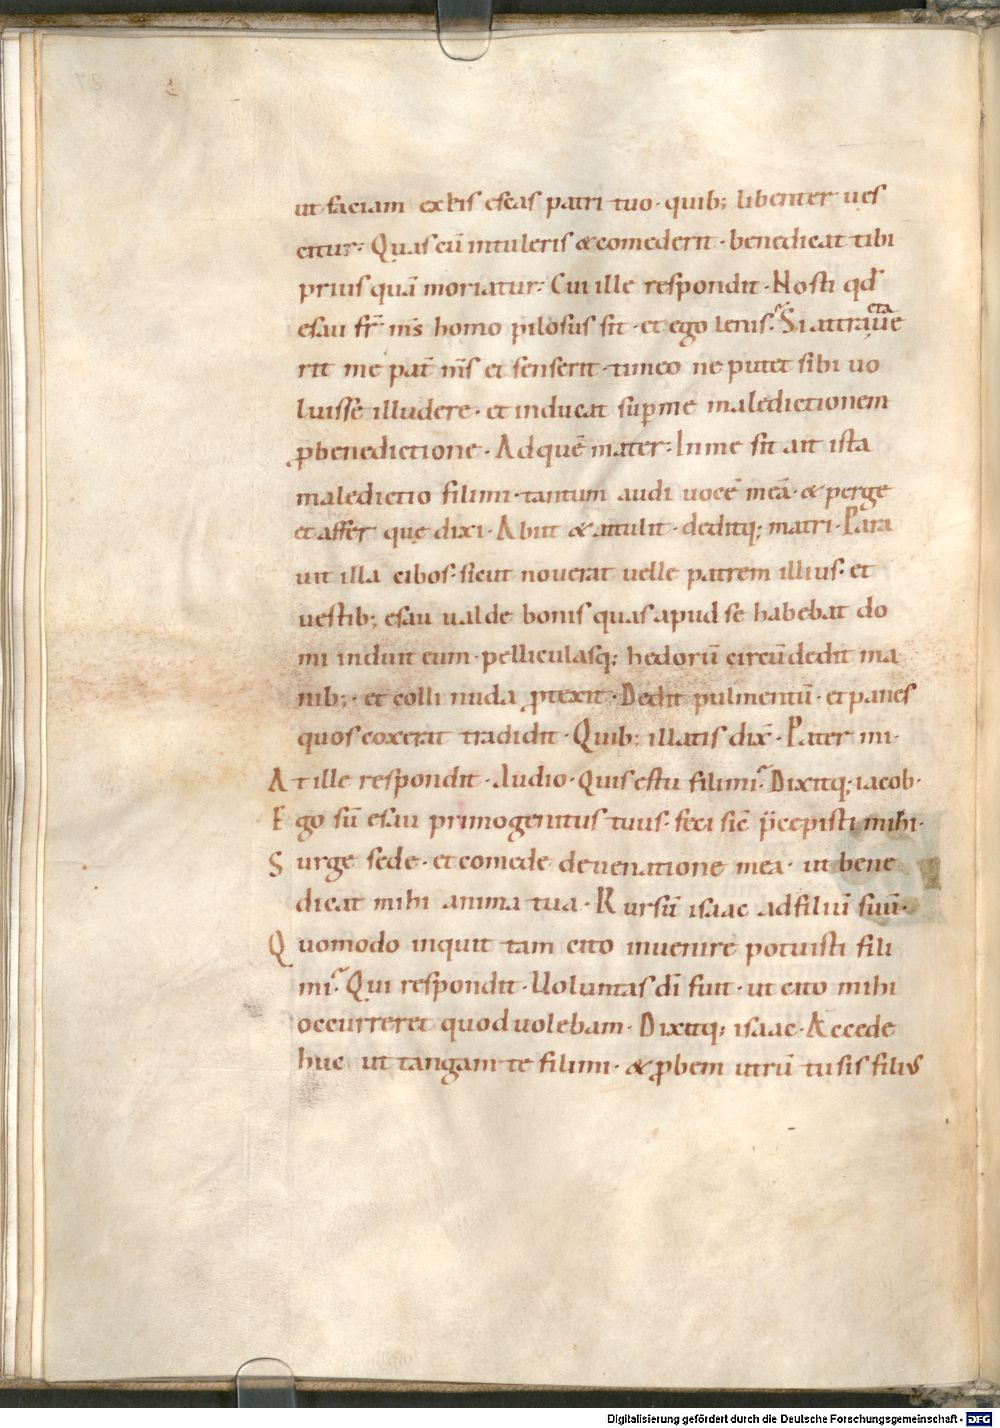 ut faciam ex eis escas patri tuo · quib; libenter ues
citur · Quas cū intuleris & comederit · benedicat tibi
prius quā moriatur · Cui ille respondit · Nosti qd̄
esau fr̄ m̄s homo pilosus sit · et ego lenis · Si attrauę̄ cta
rit me pat̄ m̄s et senserit · timeo ne putet sibi uo
luisse illudere · et inducat suꝑ me maledictionem
ꝓ benedictione · Ad quē mater · In me sit ait ista
maledictio fili mi · tantum audi uocē meā · & perge
et affer que dixi · Abiit & attulit · deditq; matri · Para
uit illa cibos · sicut nouerat uelle patrem illius · et
uestib; esau ualde bonis quas apud se habebat do
mi induit eum · pelliculasq; hedorū circūdedit ma
nib; · et colli nuda ꝓtexit · Dedit pulmentū · et panes
quos coxerat tradidit · Quib; illatis dix̄ · Pater mi ·
At ille respondit · Audio · Quis es tu fili mi · Dixitq; iacob ·
Ego sū esau primogenitus tuus · feci sic̄ p̄cepisti mihi ·
Surge sede · et comede de uenatione mea · ut bene
dicat mihi anima tua · Rursū isaac ad filiū suū ·
Quomodo inquit tam cito inuenire potuisti fili
mi · Qui respondit · Uoluntas dī fuit · ut cito mihi
occurreret quod uolebam · Dixitq; isaac · Accede
huc ut tangam te fili mi · & ꝓbem utrū tu sis filius
Digitalisierung gefördert durch die Deutsche Forschungsgemeinschaft - DFG